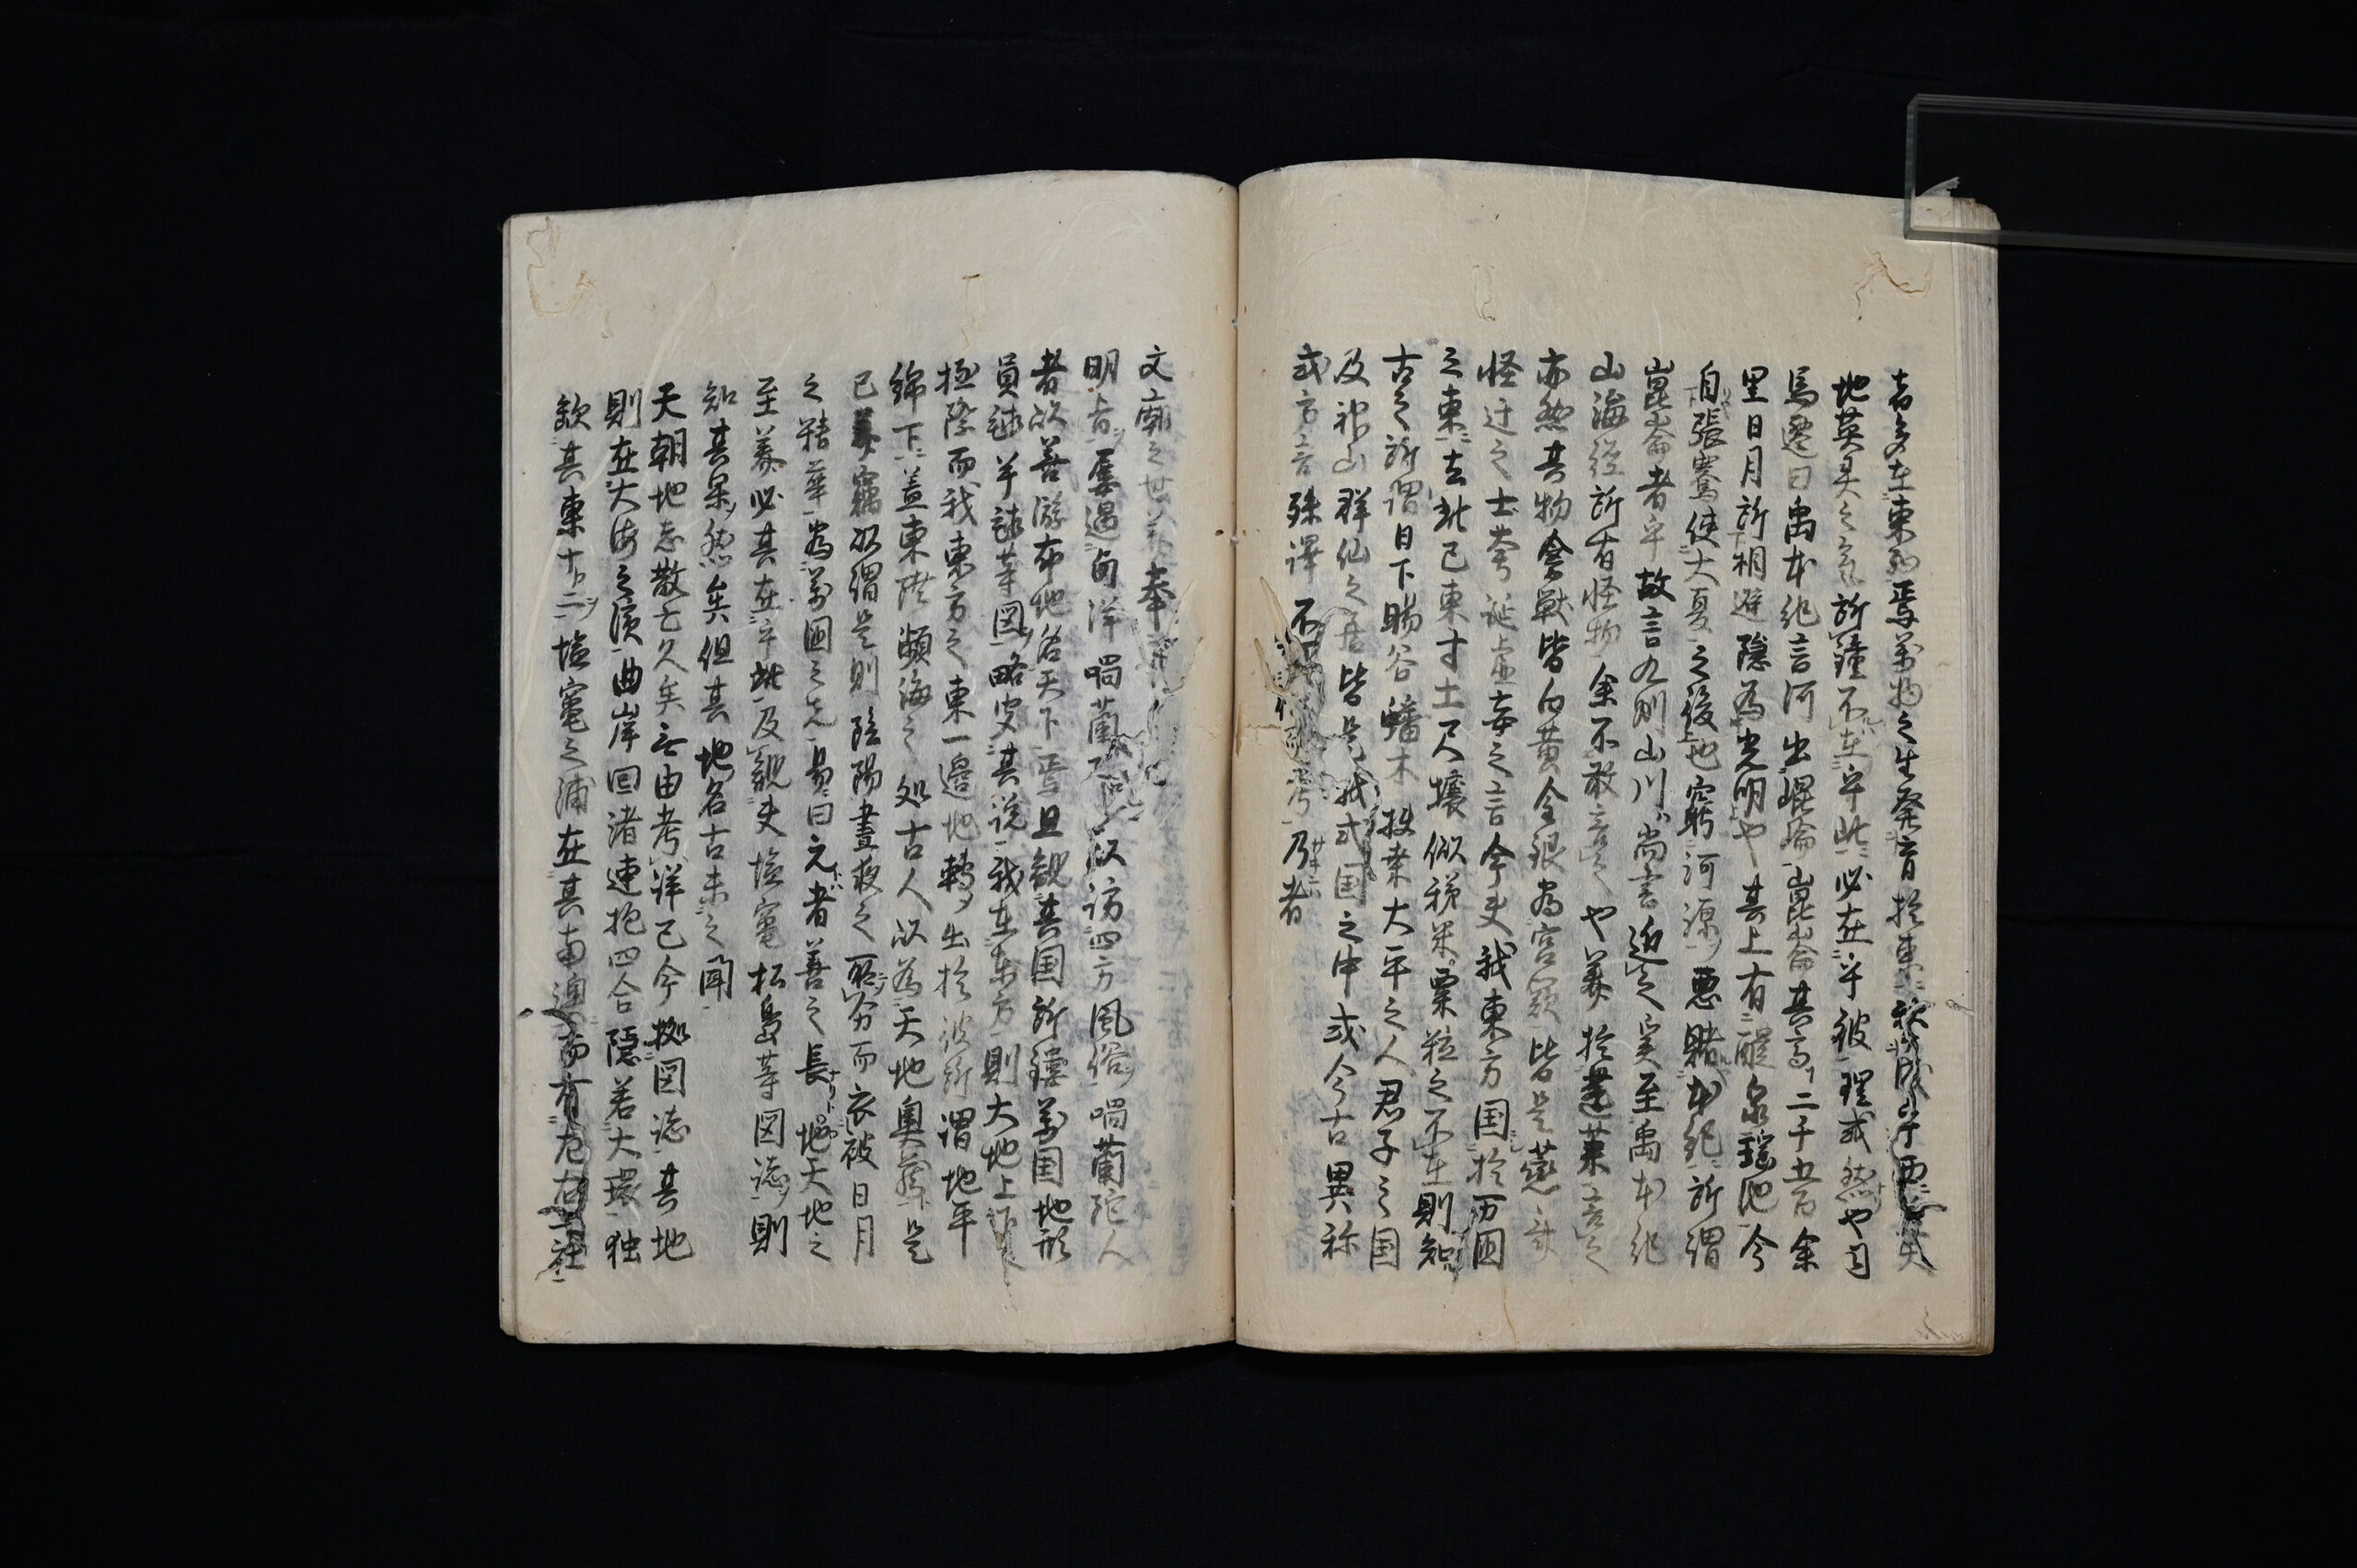 者多在東西焉万物之生発育於東
地英灵之 所鐘不在乎此必在乎彼理或然也司
馬遷曰禹本紀言河出崐崘崑崙其高二千五百余
里日月所相避隠為光明也其上有醴泉瑶池今
自張騫使大夏之後也窮河源悪睹本紀所謂
崑崙者乎故言九州山川尚書近之矣至禹本紀
山海経所有怪物余不敢言之也蓋於蓬莱言之
亦然其物禽獣皆白黄金銀為宮闕皆是
怪迂之士夸誕虚妄之言今夫我東方国於万国
之東去此已東寸土尺壌似稊米粟粒之不在則知
古之所謂日下暘谷蟠木扶桑大平之人君子之国
及 山群仙之居皆是我国之中或今古異称
或方言殊譯不 乃者
文廟之世 奉
明旨屡遇 洋喎蘭 以訪四方風俗喎蘭陀人
者以善游布地名天下焉且観其国所鏤万国地形
員球半球等図略 其説我在東方則大地上下
極際而我東方之東一邉地轉出於彼所謂地平
綿下蓋東隆瀬海之処古人以為天地奥 是
已 竊以謂是則陰陽昼夜之所分而衣被日月
之精華為万国之先易曰元者善之長地天地之
至蓋必其在乎此及観夫塩竃松島等図誌則
知其果然矣但其地名古未之聞
天朝地志散亡久矣 由考詳已今拠図誌其地
則在大海之濱曲岸回渚連抱四合隠若大環独
缺其東 二塩竃之浦在其南 有 社